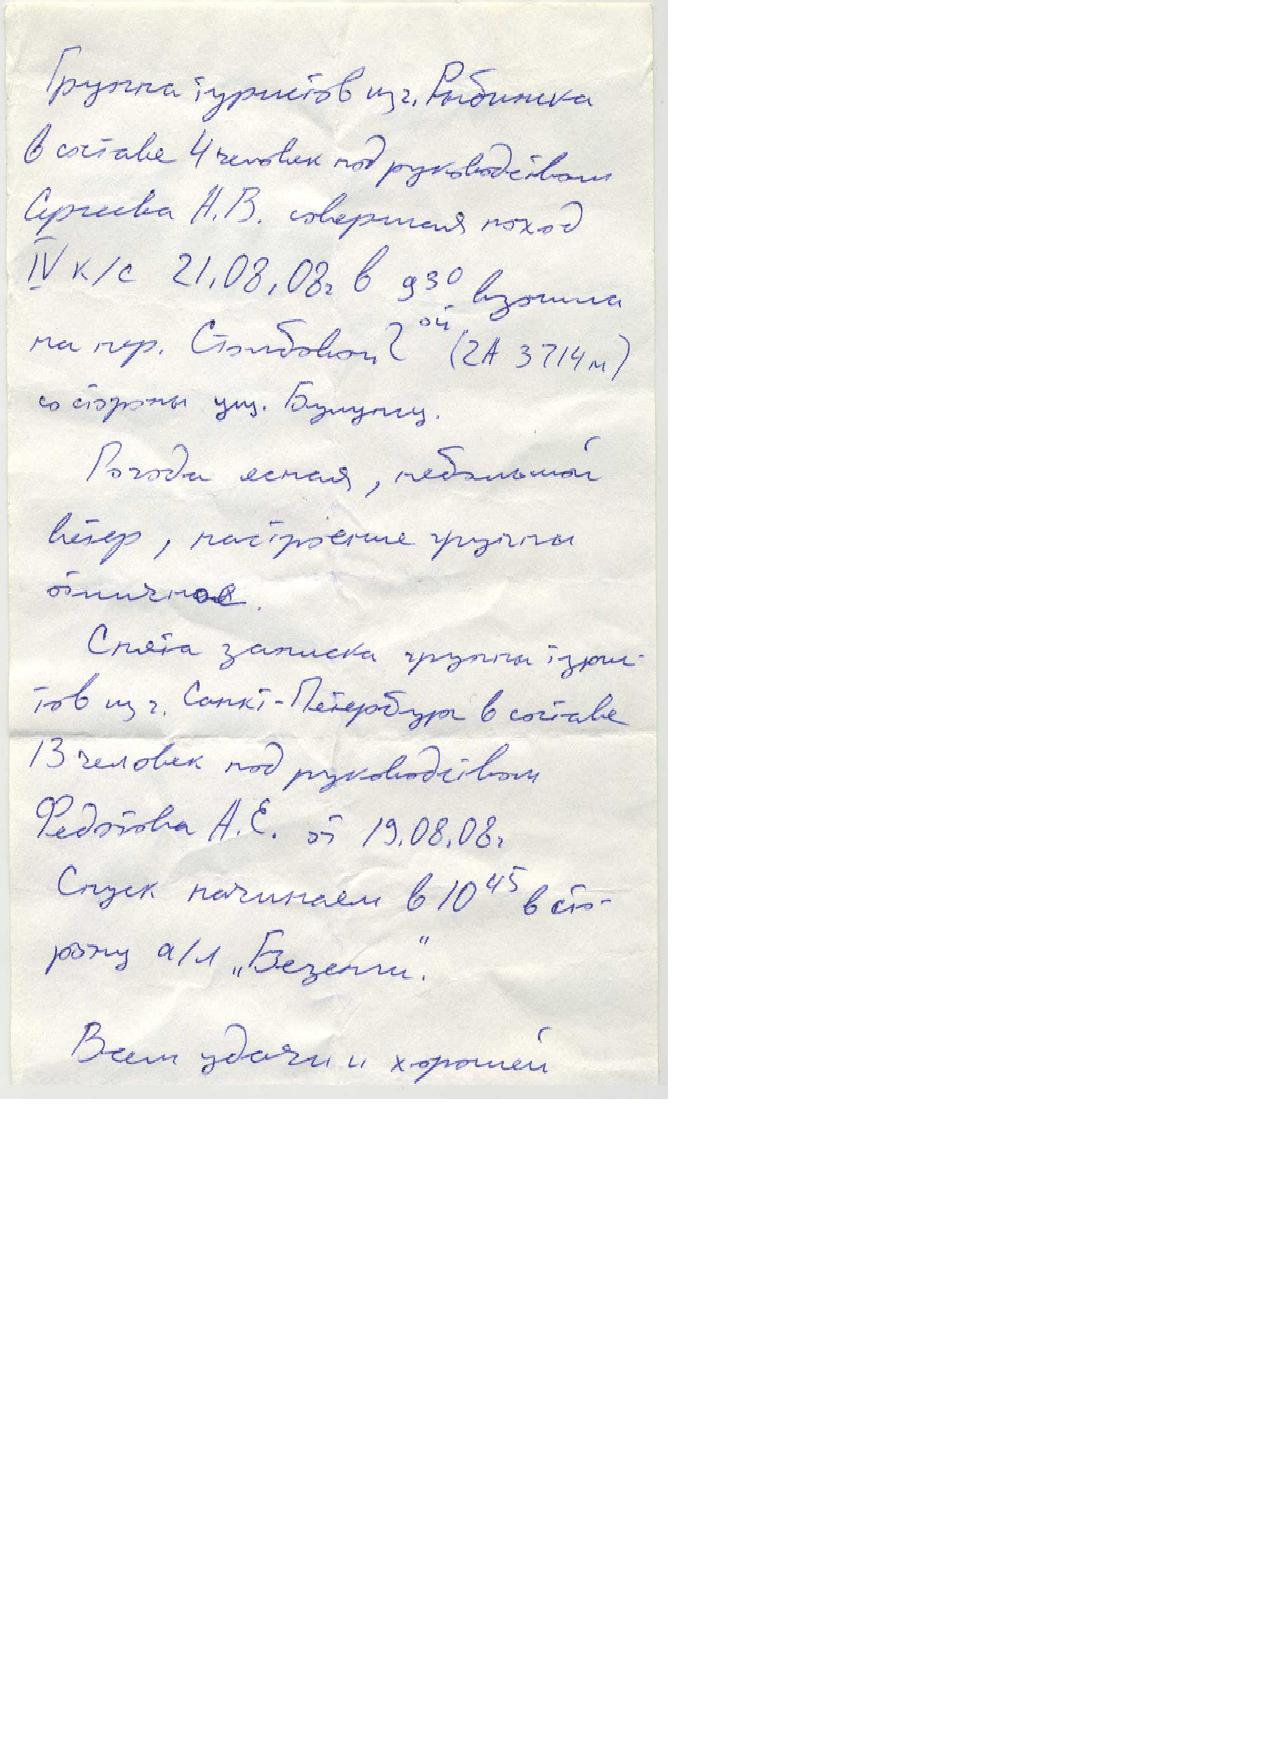 Группа туристов из г. Рыбинска
в составе 4 человек под руководством
Сергеева А.В. совершая поход
IV к/с 21.08.08г в 9 30 взошла
на пер. Столбовой 2 ой (2А 3714м)
со стороны ущ.
Погода ясная, небольшой
ветер, настроение группы
отличное.
Снята записка группы турис-
тов из г. Санкт-Петербург в составе
13 человек под руководством
Федотова А.Е. от 19.08.08г
Спуск начинаем в 10 45 в сто-
рону а/л „Безенги".
Всем удачи и хорошей